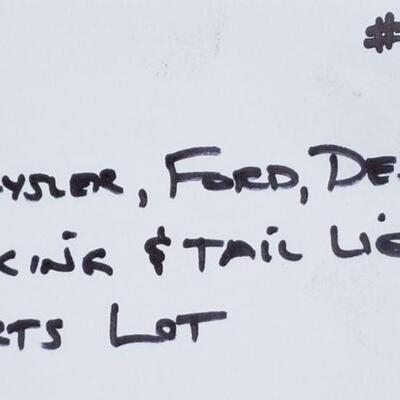 #
YSLER, FORD, DE
KING & TAIL LIG
RTS LOT